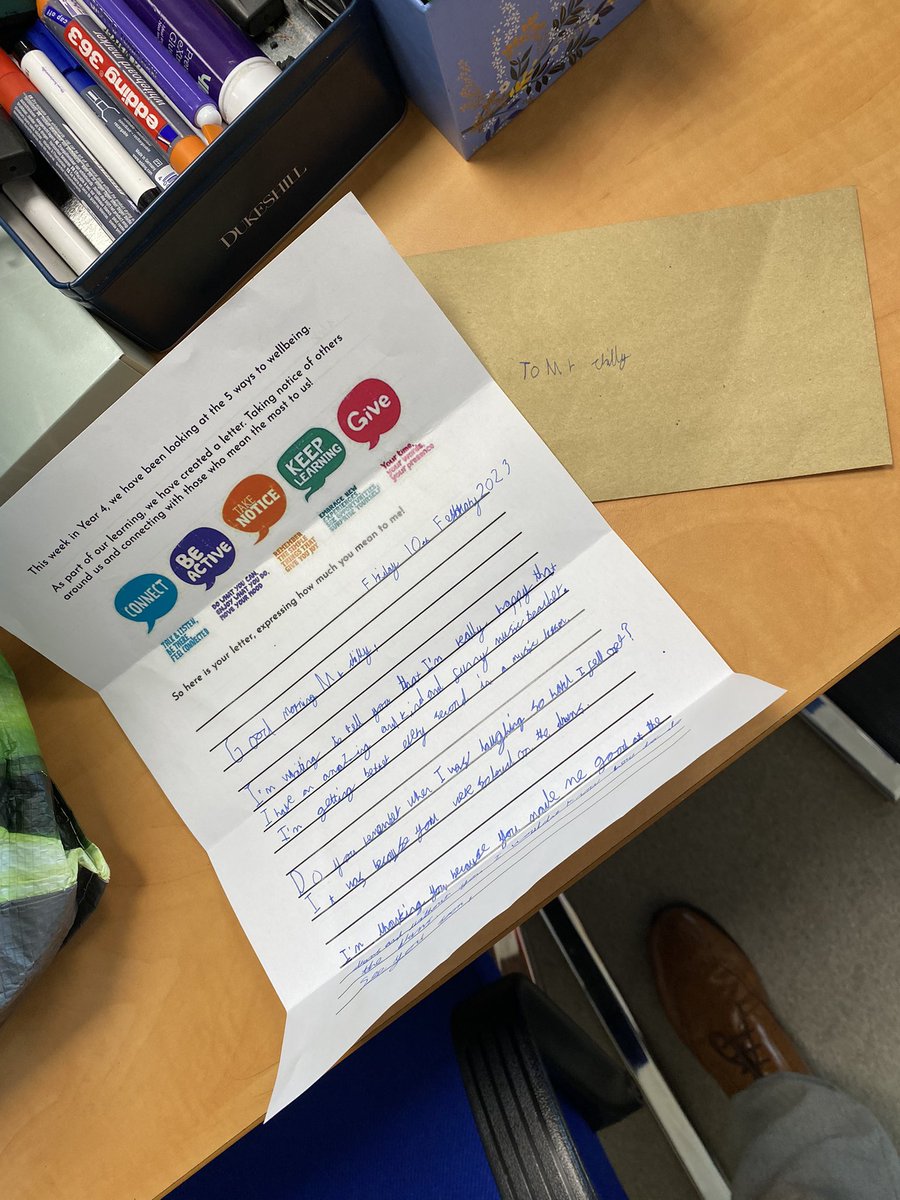 edding 363
whiteboard marker
cap off
DUKESHILL
To Mr
This week in Year 4, we have been looking at the 5 ways to wellbeing.
As part of our learning, we have created a letter. Taking notice of others
around us and connecting with those who mean the most to us!
CONNECT
TALK & LISTEN,
BE THERE,
FEEL CONNECTED
BE
ACTIVE
DO WHAT YOU CAN,
ENJOY WHAT YOU DO,
MOVE YOUR MOOD
TAKE
NOTICE
REMEMBER
THE SIMPLE
THINGS THAT
GIVE YOU JOY
KEEP
LEARNING
EMBRACE NEW
EXPERIENCES,
SEE OPPORTUNITIES,
SURPRISE YOURSELF
Give
Your time,
your words,
your presence
So here is your letter, expressing how much you mean to me!
Friday 10th February 2023
Good morning Mr
I'm writing to tell you that I'm really happy that
I have an amazing and kind and funny music teacher.
I'm getting better every second in a music lesson.
Do you remember when I was laughing so hard I fell off?
It was because you were so loud on the drums.
I'm thanking you because you made me good at the
see you soon